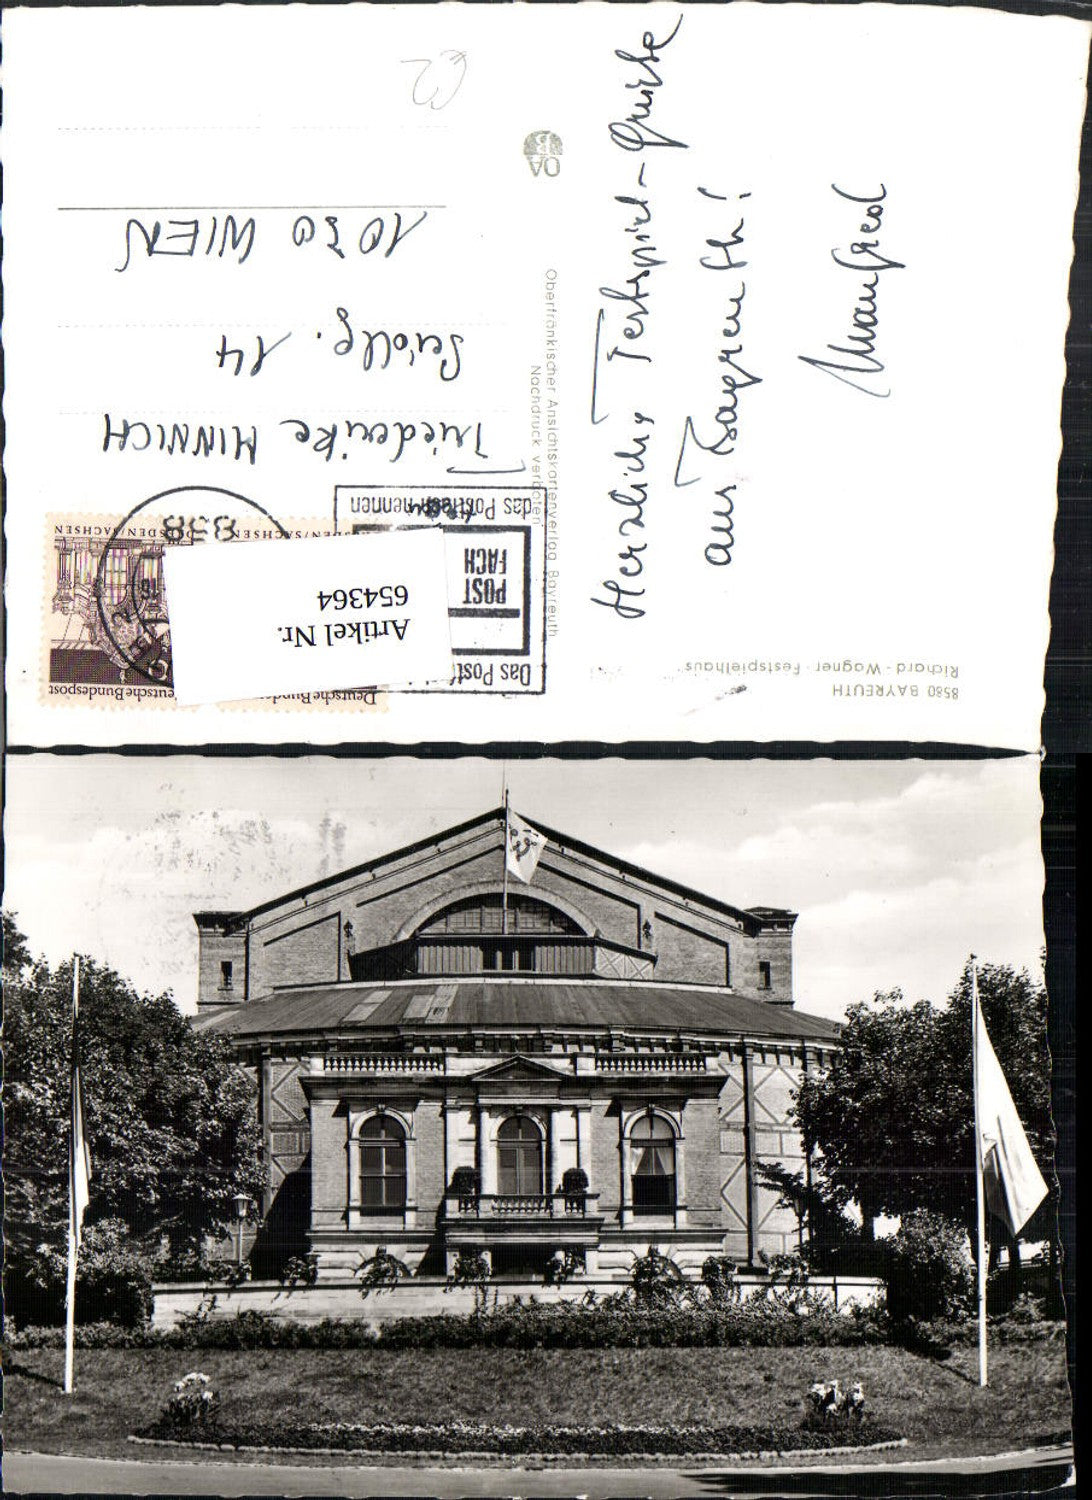 8580 BAYREUTH
Richard-Wagner-Festspielhaus
Herzliche Festspiel-Grüße
aus Bayreuth!
Manfred
Oberfränkischer Ansichtskartenverlag Bayreuth
Nachdruck verboten
OA
Das Post
POST
FACH
das Postfach nennen
Deutsche Bundespost
Deutsche Bund
DRESDEN/SACHSEN
DRESDEN/SACHSEN
Artikel Nr.
654364
Friederike MINNICH
14
1030 WIEN
€2